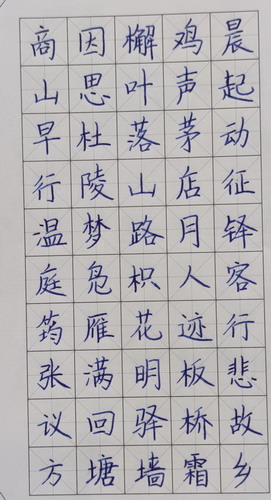 晨起动征铎客行悲故乡
鸡声茅店月人迹板桥霜
檞叶落山路枳花明驿墙
因思杜陵梦凫雁满回塘
商山早行温庭筠张议方